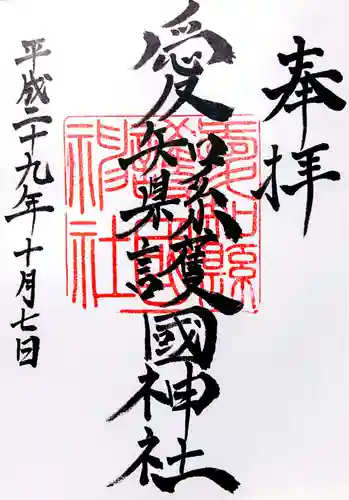 奉拝
愛知縣護國神社
平成二十九年十月七日
愛知縣
護國
神社